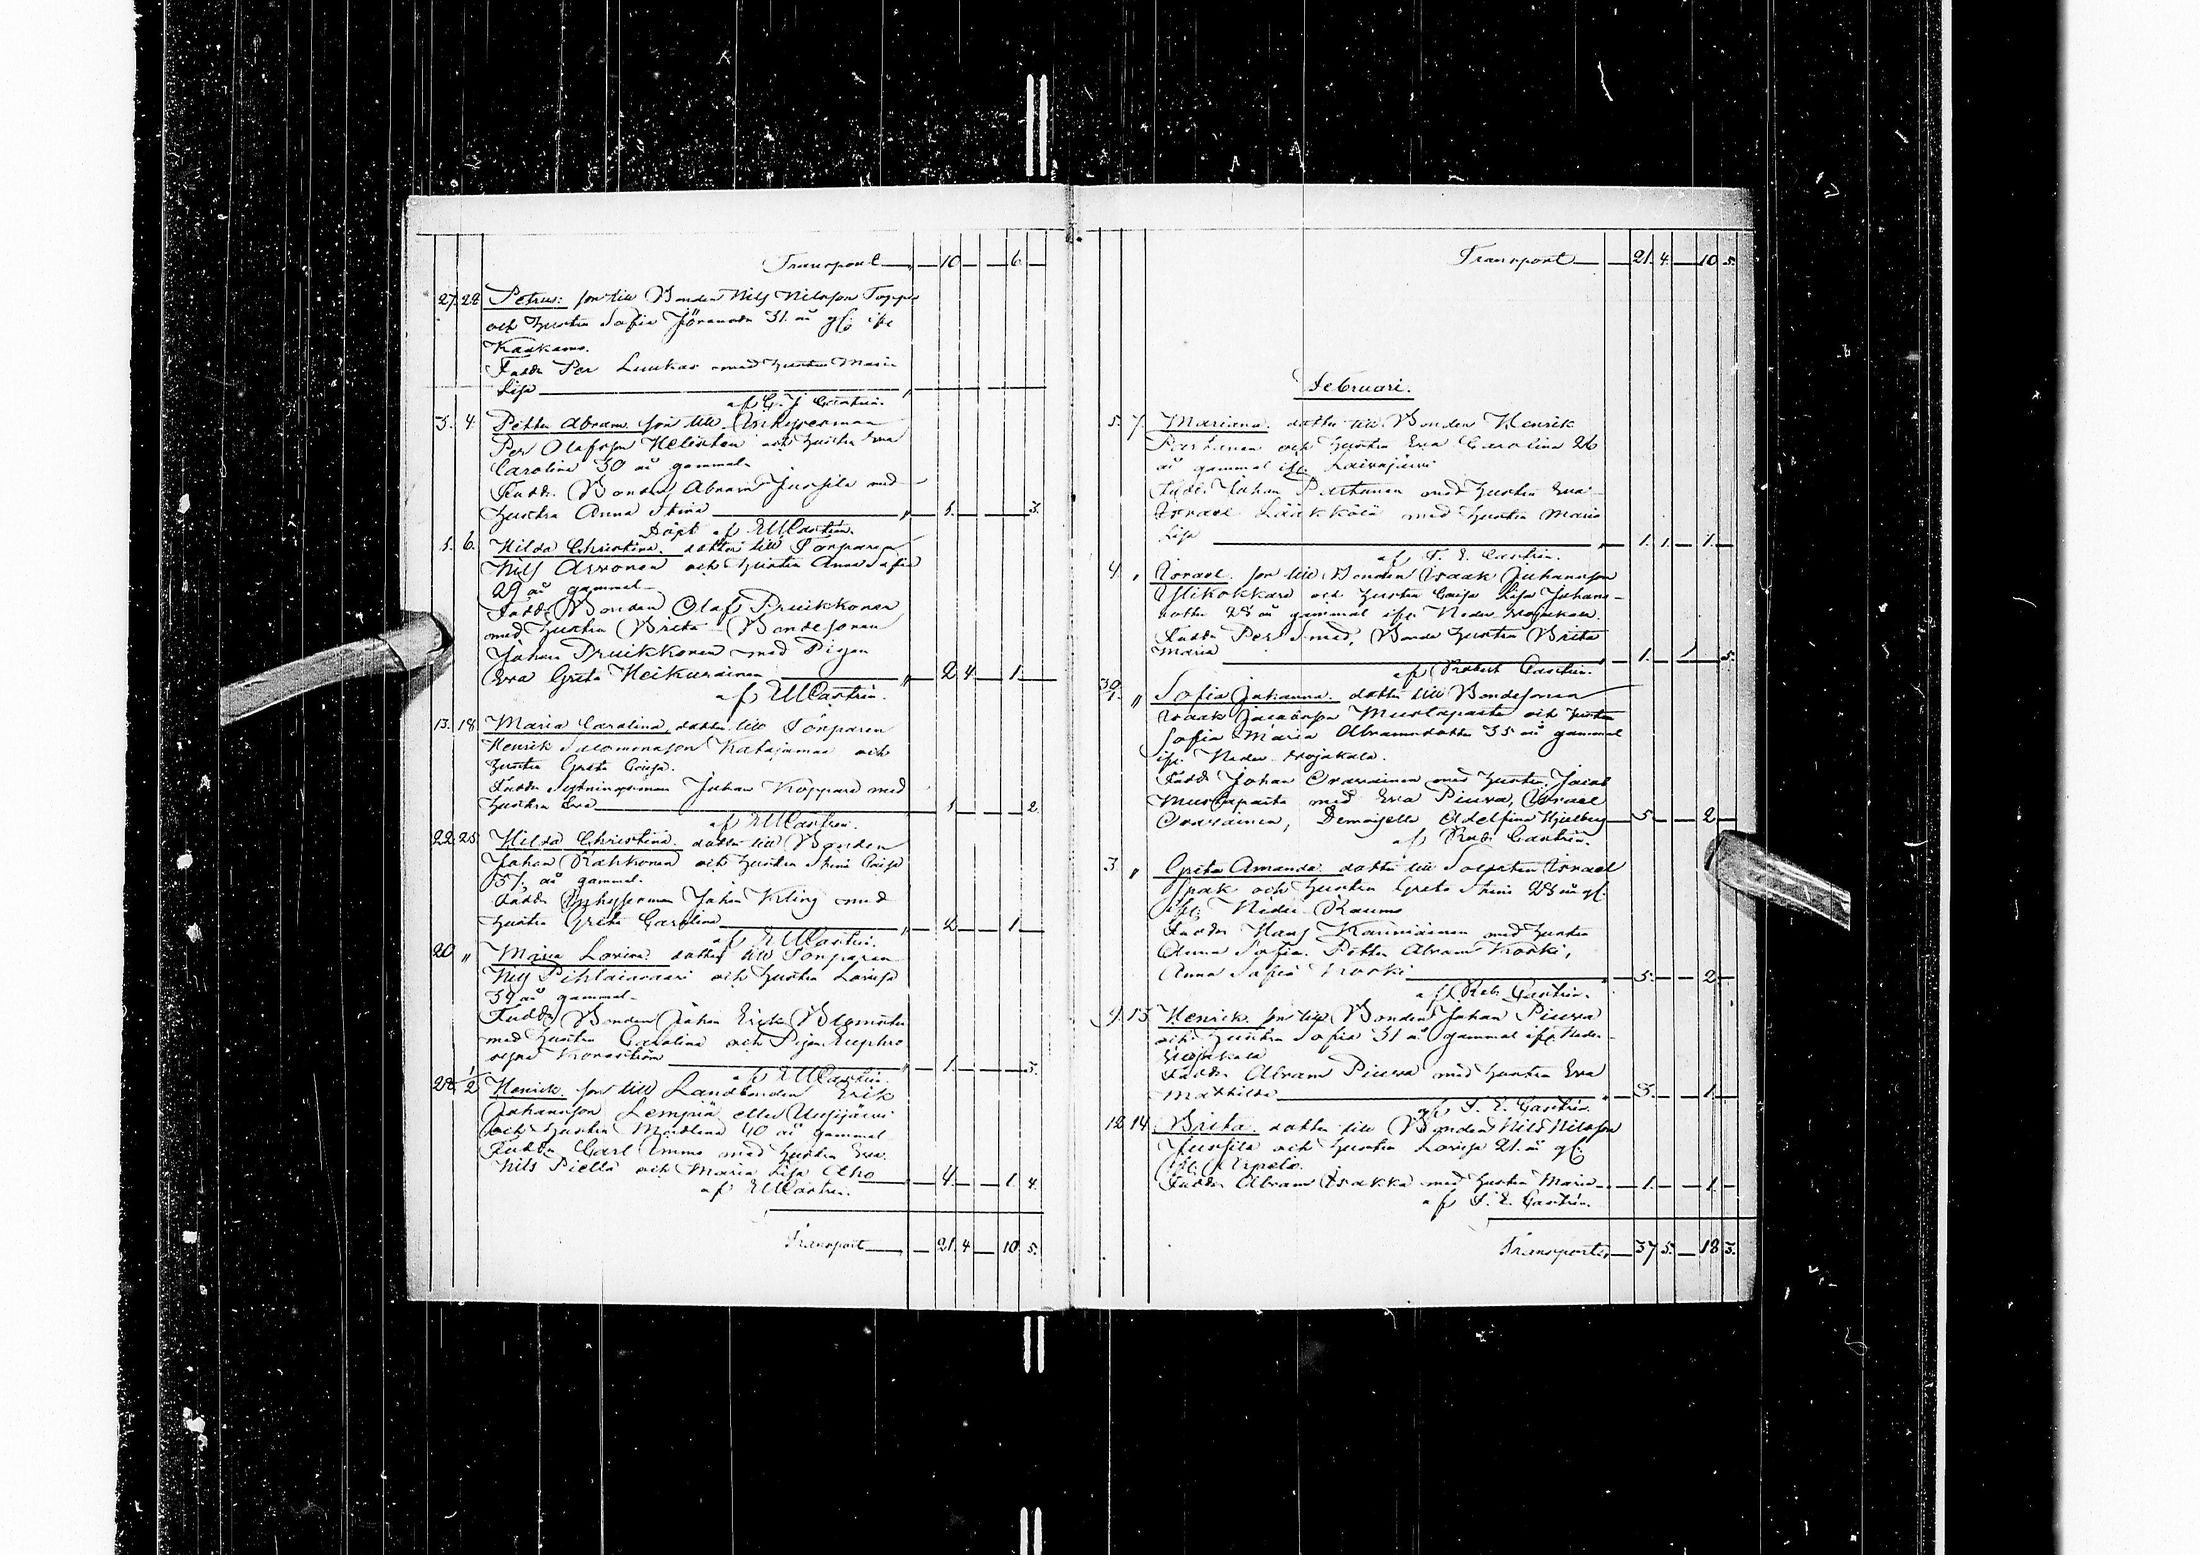 Transport — 10 — 6 —
27. 28. Petrus: son till Bonden Nils Nilsson Toppo
och hustru Sofia Jöransdr 31. år gl: ifr.
Kaakamo.
Fadd. Per Luukas med hustru Maria
Lisa
af G. J. Castrén.
3. 4. Petter Abram. son till Inhysesman
Per Olafsson Helistén och hustru Eva
Carolina 30 år gammal
Fadd. Bonden Abram Juosila med
hustru Anna Stina — 1. — 3.
Döpt af E M Castrén.
1. 6. Hilda Christina. dotter till Torparen
Nils Asronen och hustru Anna Sofia
29 år gammal
Fadd. Bonden Olaf Pruikkonen
med hustru Brita Bondesonen
Johan Pruikkonen med Pigan
Eva Greta Heikurainen — 2 4 — 1 —
af E M Castrén.
13. 18. Maria Carolina, dotter till Torparen
Henrik Salomonsson Katajamaa och
hustru Greta Caisa.
Fadder Nybyningsman Johan Koppara med
hustru Eva — 1 — 2.
af E M Castrén.
22. 25. Hilda Christina. dotter till Bonden
Johan Rahkonen och hustru Stina Caisa
37, år gammal.
Fadder Inhysesman Johan Kling med
hustru Greta Carolina — 2. — 1. —
af E M Castrén.
20 „ Maria Lovisa. dotter till Torparen
Nils Pihlaisaari och hustru Lovisa
39 år gammal.
Fadd. Bonden Johan Erik Blomster
med hustru Carolina och Pigan Euphro
sygne Kronström — 1. — 3.
af E M Castrén.
28. 1/2 Henrik. son till Landbonden Erik
Johansson Lempiä eller Uusijärvi
och hustru Madlena 40 år gammal
Fadder Carl Immo med hustru Eva.
Nils Piella och Maria Lisa Alho — 4. — 1. 4.
af E M Castrén.
Transport — 21. 4 — 10. 5.
Transport — 21. 4. — 10 5.
Februari.
5. 7. Mariana. dotter till Bonden Henrik
Partanen och hustru Eva Carolina 26
år gammal ifr. Laivajärvi
Fadd. Johan Partanen med hustru Eva
Israel Lääkkölä med hustru Maria
Lisa — 1. 1. — 1. —
af F. E. Castrén.
4. „ Israel. son till Bonden Isaak Juhansson
Ylikokkare och hustru Caisa Lisa Johans-
dotter 28 år gammal ifr. Neder Wojakala.
Fadder Per Smed, Bonde hustru Brita
Maria — 1. — 1 — 5.
af Robert Castrén.
30/1. „ Sofia Johanna. dotter till Bondesonen
Isaak Jacobsson Mustaparta och hustru
Sofia Maria Abramsdotter 35 år gammal
ifr. Neder Wojakala.
Fadd. Johan Orawainen med hustru, Jacob
Mustaparta med Eva Piuva, Israel
Orawainen, Demoiselle Adelfina Hjelberg — 5 — 2 —
af Rob. Castrén.
3. „ Greta Amanda. dotter till Soldaten Israel
Spak och hustru Greta Stina 28 år gl.
ifr. Neder Raumo
Fadder Hans Kauniainen med hustru
Anna Sofia. Petter Abram Koski,
Anna Sofia Koski — 3. — 2 —
af Rob. Castrén.
9. 13. Henrik. son till Bonden Johan Piuva
och hustru Sofia 31 år gammal ifr. Neder-
Wojakala
Fadder Abram Piuva med hustru Eva
Mathilda — 3. — 1. —
af F. E. Castrén.
12. 14. Brita. dotter till Bonden Nils Nilsson
Juosila och hustru Lovisa 21. år gl.
ifr. Arpela.
Fadder Abram Isakka med hustru Maria — 1. — 1. —
af F. E. Castrén.
Transport — 37 5. — 18 3.